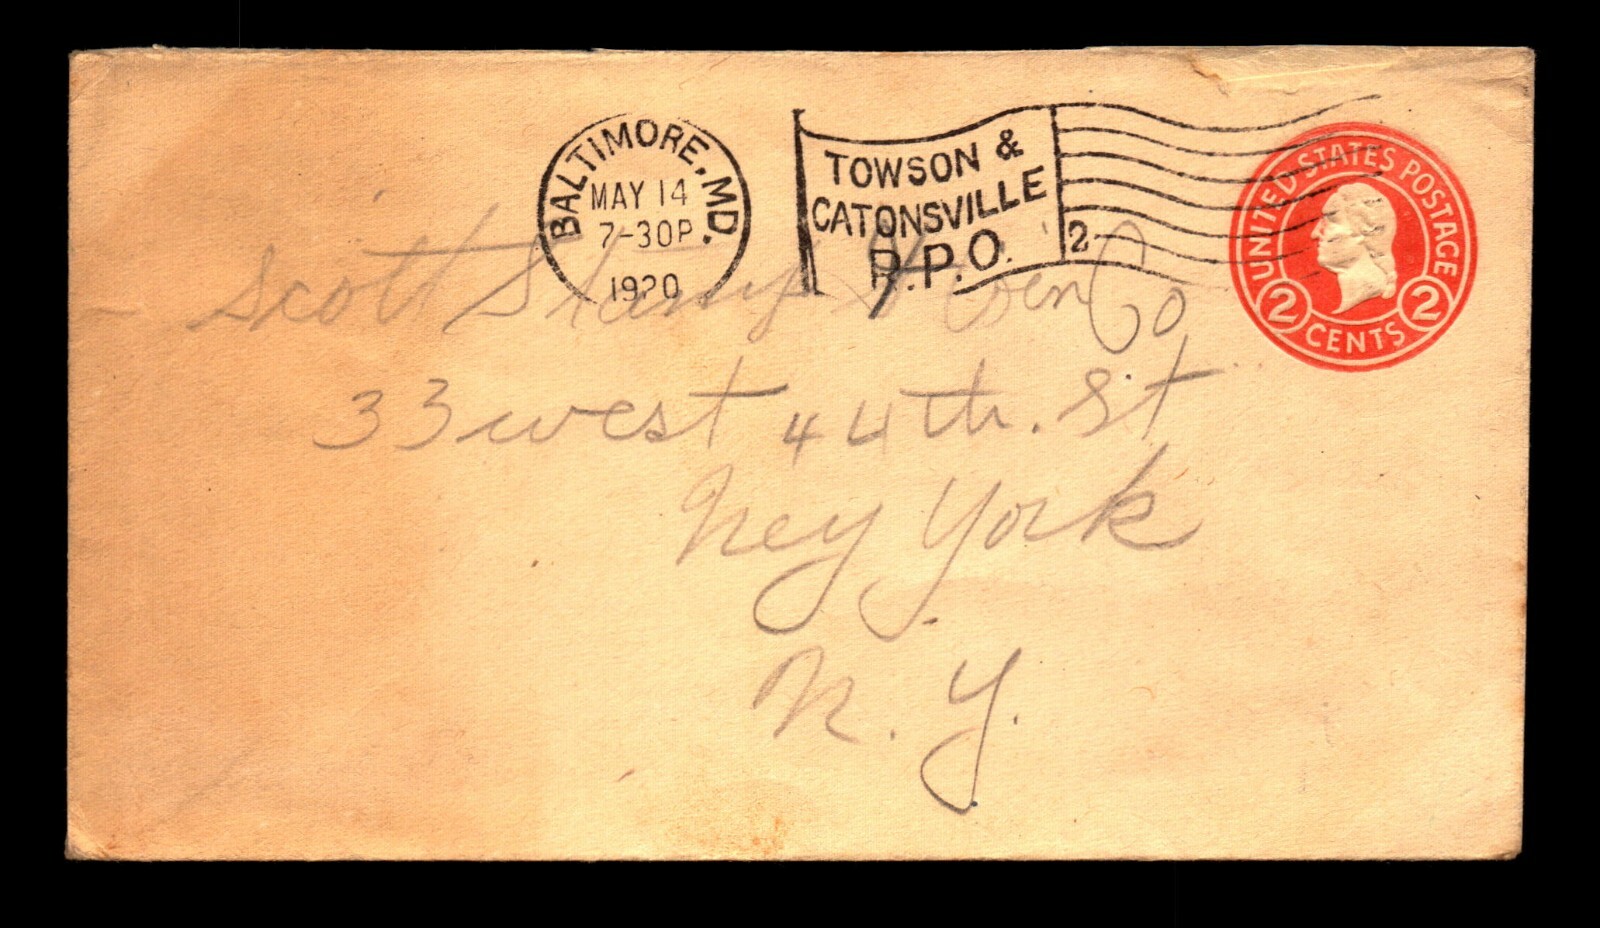 BALTIMORE, MD.
MAY 14
7-30P
1920
TOWSON &
CATONSVILLE
R.P.O.
2
UNITED STATES POSTAGE
2 CENTS 2
Scott Stamp & Coin Co
33 West 44th. St
Ney York
N. Y.